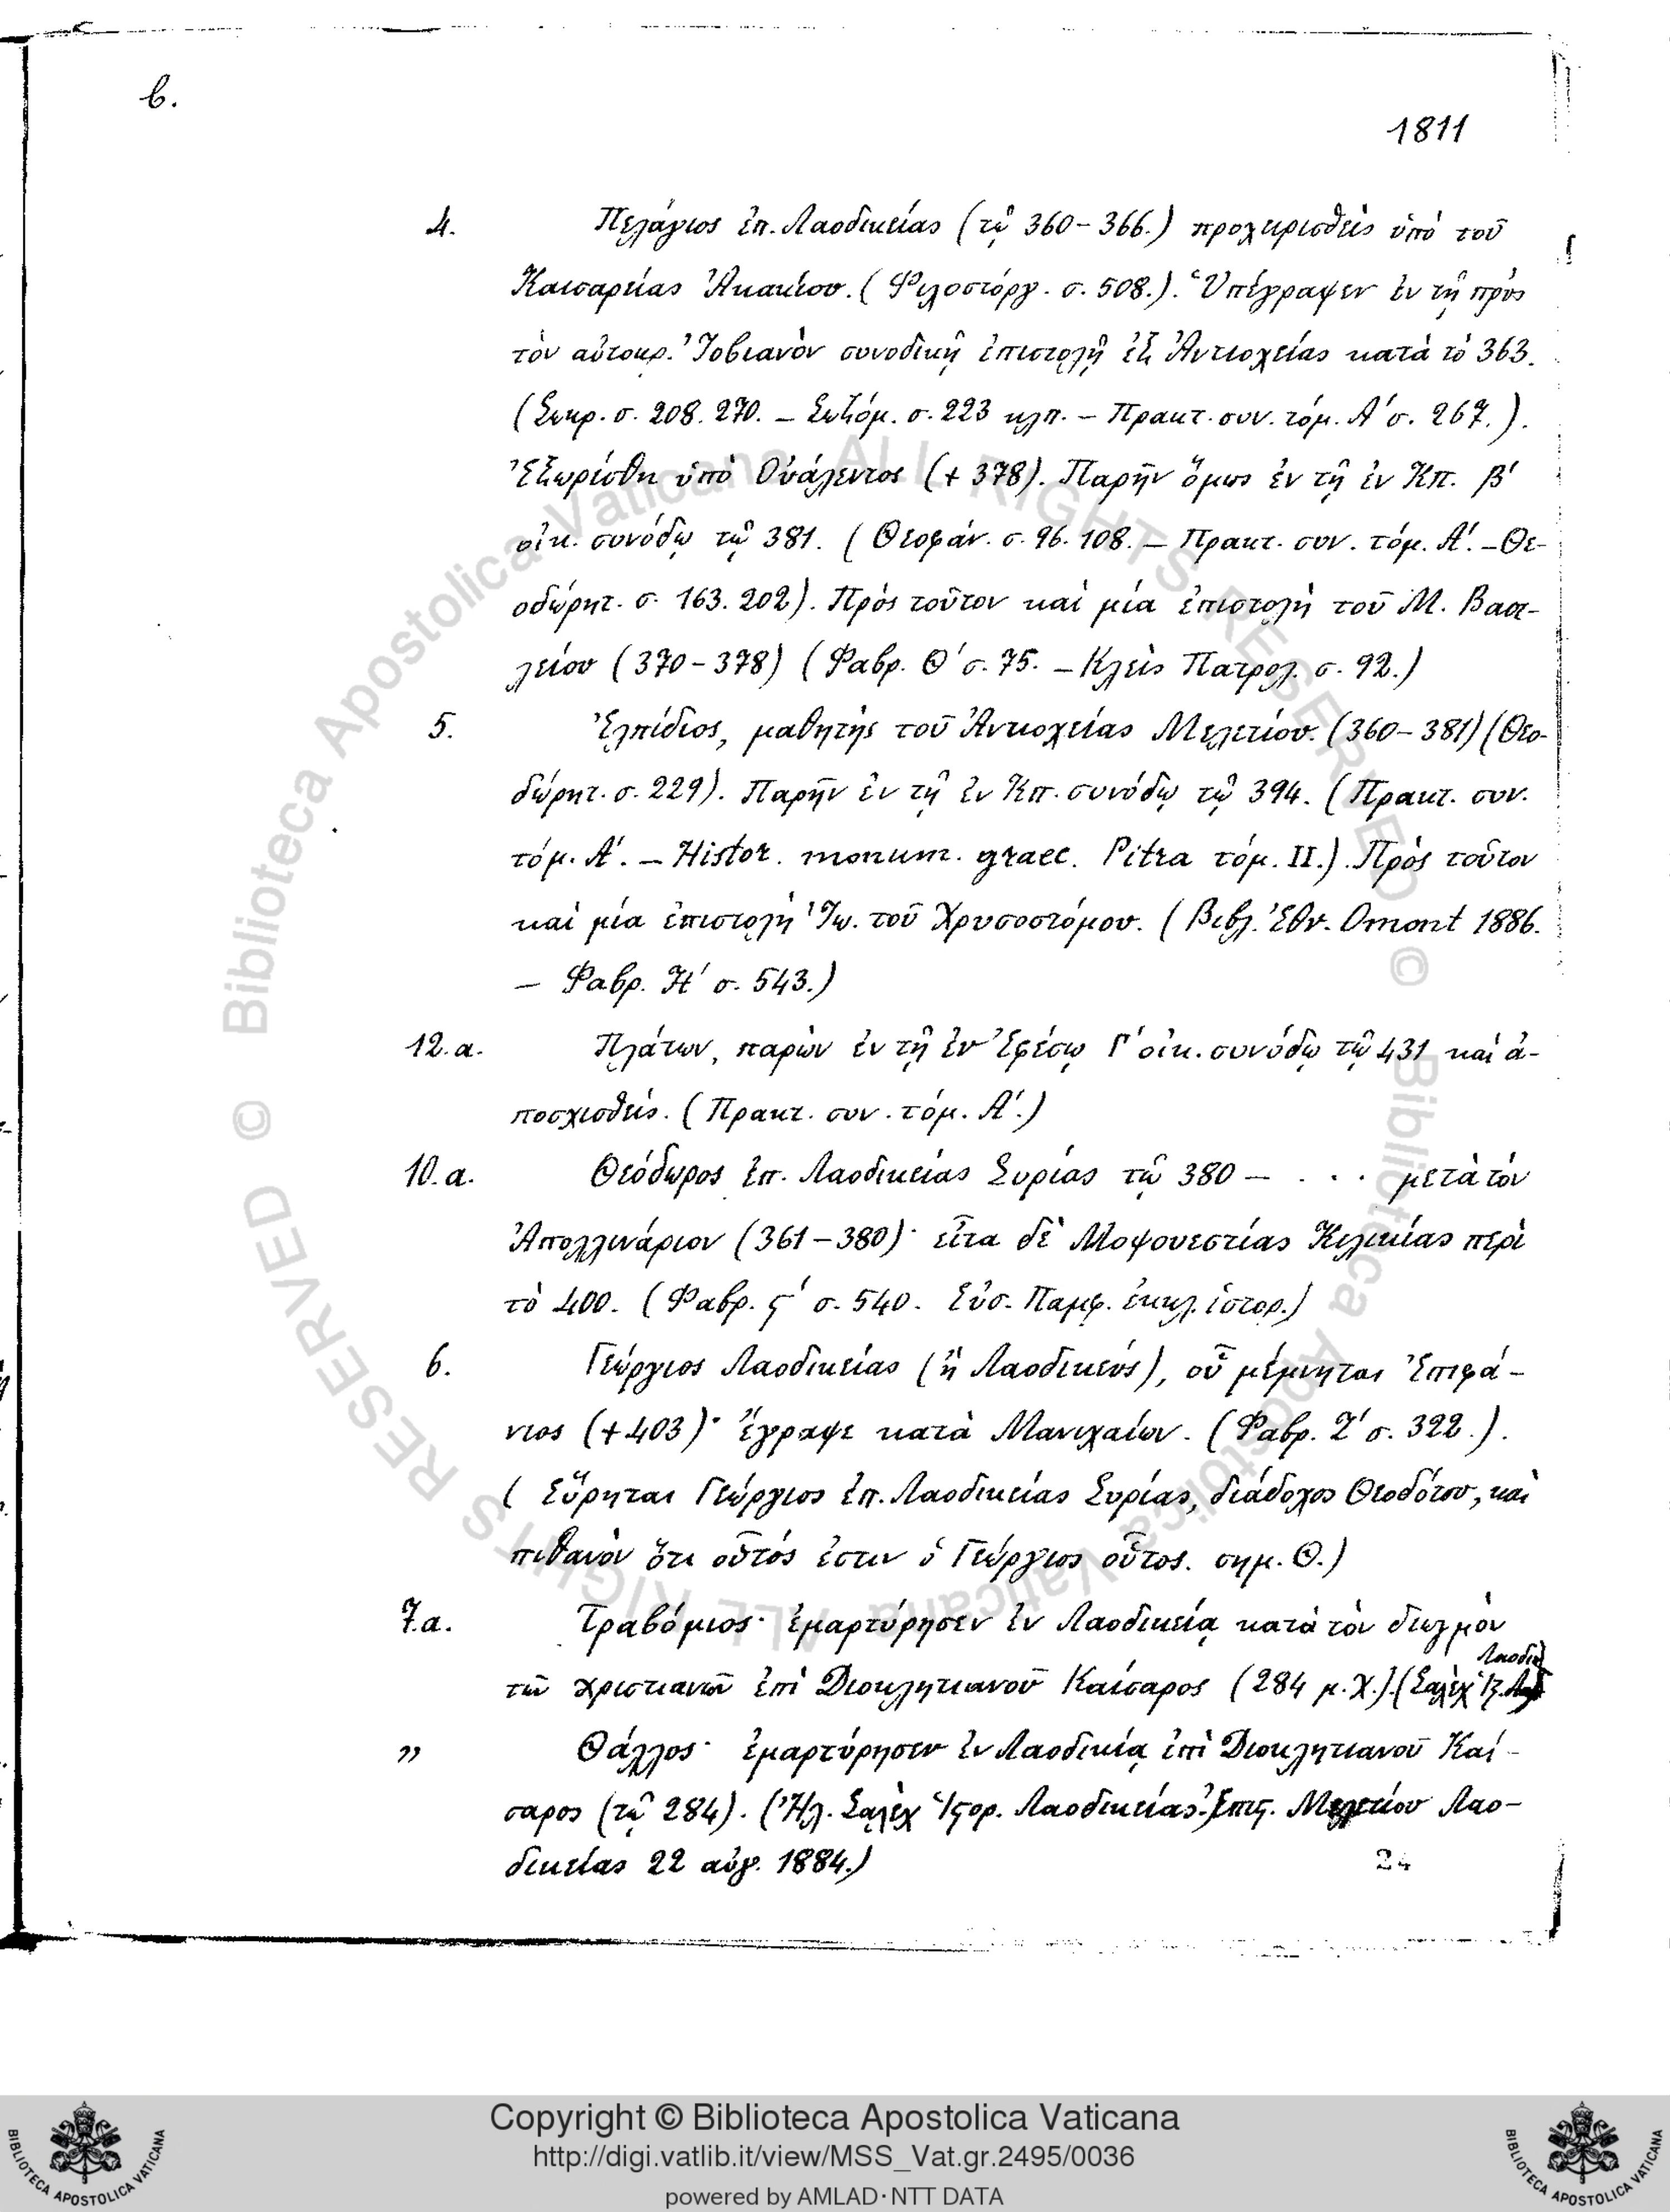 6.
1811
4. Πελάγιος ἐπ. Λαοδικείας (τῷ 360–366.) προχειρισθεὶς ὑπὸ τοῦ
Καισαρείας Ἀκακίου. (Φιλοστόργ. σ. 508.). Ὑπέγραψεν ἐν τῇ πρὸς
τὸν αὐτοκρ. Ἰοβιανὸν συνοδικῇ ἐπιστολῇ ἐξ Ἀντιοχείας κατὰ τὸ 363.
(Σωκρ. σ. 208. 270. – Σωζόμ. σ. 223 κλπ. – Πρακτ. συν. τόμ. Α΄ σ. 267.).
Ἐξωρίσθη ὑπὸ Οὐάλεντος (+ 378). Παρῆν ὅμως ἐν τῇ ἐν Κπ. β΄
οἰκ. συνόδῳ τῷ 381. (Θεοφάν. σ. 96. 108. – Πρακτ. συν. τόμ. Α΄. – Θε-
οδώρητ. σ. 163. 202). Πρὸς τοῦτον καὶ μία ἐπιστολὴ τοῦ Μ. Βασι-
λείου (370–378) (Φαβρ. Θ΄ σ. 75. – Κλεὶς Πατρολ. σ. 92.)
5. Ἐλπίδιος, μαθητὴς τοῦ Ἀντιοχείας Μελετίου. (360–381) (Θεο-
δώρητ. σ. 229). Παρῆν ἐν τῇ ἐν Κπ. συνόδῳ τῷ 394. (Πρακτ. συν.
τόμ. Α΄. – Histor. monum. graec. Pitra τόμ. II.). Πρὸς τοῦτον
καὶ μία ἐπιστολὴ Ἰω. τοῦ Χρυσοστόμου. (Βιβλ. Ἐθν. Omont 1886.
– Φαβρ. Η΄ σ. 543.)
12.α. Πλάτων, παρὼν ἐν τῇ ἐν Ἐφέσῳ Γ΄ οἰκ. συνόδῳ τῷ 431 καὶ ἀ-
ποσχισθείς. (Πρακτ. συν. τόμ. Α΄.)
10.α. Θεόδωρος ἐπ. Λαοδικείας Συρίας τῷ 380 – . . . μετὰ τὸν
Ἀπολλινάριον (361–380)· εἶτα δὲ Μοψουεστίας Κιλικίας περὶ
τὸ 400. (Φαβρ. ϛ΄ σ. 540. Εὐσ. Παμφ. ἐκκλ. ἱστορ.)
6. Γεώργιος Λαοδικείας (ἢ Λαοδικεύς), οὗ μέμνηται Ἐπιφά-
νιος (+ 403)· ἔγραψε κατὰ Μανιχαίων. (Φαβρ. Ζ΄ σ. 322.).
(Εὕρηται Γεώργιος ἐπ. Λαοδικείας Συρίας, διάδοχος Θεοδότου, καὶ
πιθανὸν ὅτι οὗτός ἐστιν ὁ Γεώργιος οὗτος. σημ. Θ.)
7.α. Τραβόμιος· ἐμαρτύρησεν ἐν Λαοδικείᾳ κατὰ τὸν διωγμὸν
Λαοδικ
τῶν χριστιανῶν ἐπὶ Διοκλητιανοῦ Καίσαρος (284 μ.Χ.). (Σαλὲχ Ἱϛ.
„ Θάλλος· ἐμαρτύρησεν ἐν Λαοδικείᾳ ἐπὶ Διοκλητιανοῦ Καί-
σαρος (τῷ 284). (Ἠλ. Σαλὲχ Ἱϛορ. Λαοδικείας.) Ἐπιϛ. Μελετίου Λαο-
δικείας 22 αὐγ. 1884.)
24
© Biblioteca Apostolica Vaticana ALL RIGHTS RESERVED
© Biblioteca Apostolica Vaticana ALL RIGHTS RESERVED
Copyright © Biblioteca Apostolica Vaticana
http://digi.vatlib.it/view/MSS_Vat.gr.2495/0036
powered by AMLAD·NTT DATA
BIBLIOTECA APOSTOLICA VATICANA
BIBLIOTECA APOSTOLICA VATICANA